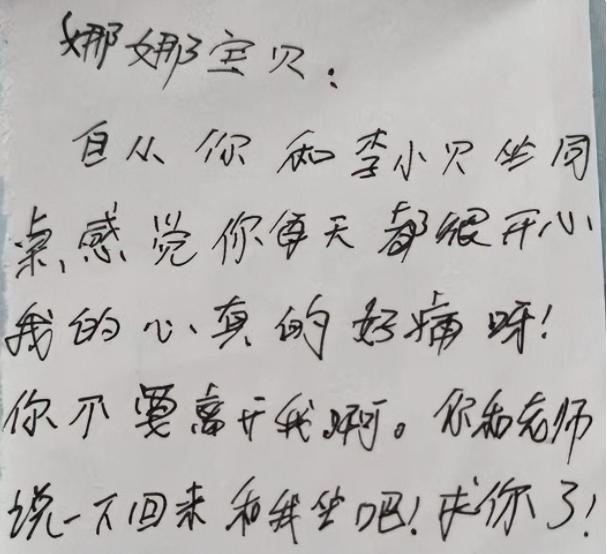 娜娜宝贝：
自从你和李小贝坐同
桌,感觉你每天都很开心
我的心真的好痛呀！
你不要离开我啊。你和老师
说一下回来和我坐吧！求你了！